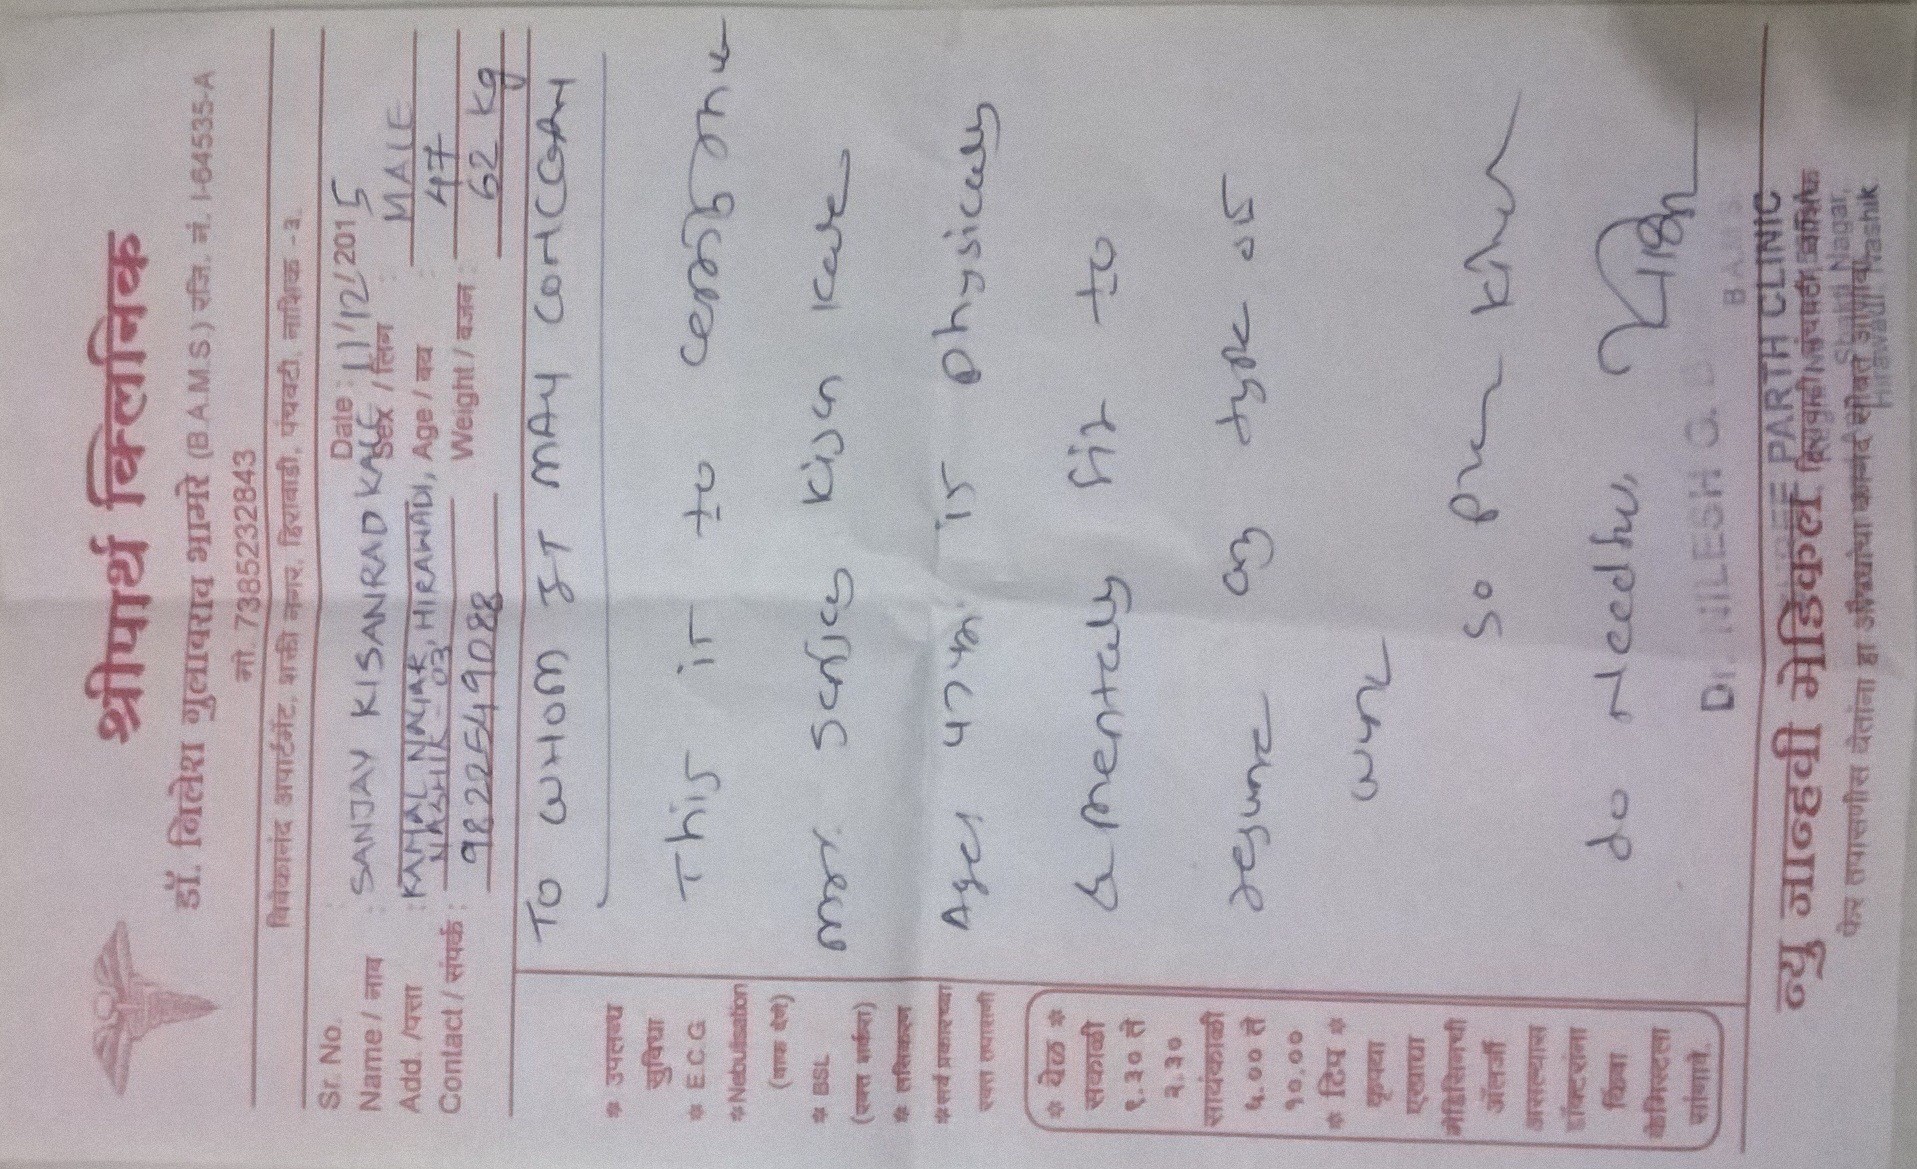 श्रीपार्थ क्लिनिक
डॉ. निलेश गुलाबराव भामरे (B.A.M.S.) रजि. नं. I-64535-A
मो. 7385232843
विवेकानंद अपार्टमेंट, शक्ती नगर, हिरावाडी, पंचवटी, नाशिक -३.
Sr. No. Date : 11/12/2015
Name / नाव : SANJAY KISANRAO KALE Sex / लिंग : MALE
Add. /पत्ता : KAMAL NAGAR, HIRAWADI, Age / वय : 47
NASHIK - 03
Contact / संपर्क : 9822549088 Weight / वजन : 62 kg
TO WHOM IT MAY CONCERN
This is to
mr. Sanjay Kisan Kale
Age 47 yrs. is physically
& mentally fit to
resume any type of
work
So
do needful
* उपलब्ध
सुविधा
* E.C.G
*Nebulisation
(वाफ देणे)
* BSL
(रक्त शर्करा)
* लसिकरण
*सर्व प्रकारच्या
रक्त तपासणी
* वेळ *
सकाळी
९.३० ते
२.३०
सायंकाळी
५.०० ते
१०.००
* टिप *
कृपया
एखाद्या
मेडिसिनची
ॲलर्जी
असल्यास
डॉक्टरांना
किंवा
केमिस्टला
सांगावे.
Dr. NILESH G.
B.A.M.S.
SHREE PARTH CLINIC
Shakti Nagar,
Hirawadi, Nashik
न्यु जान्हवी मेडिकल
फेर तपासणीस येतांना हा